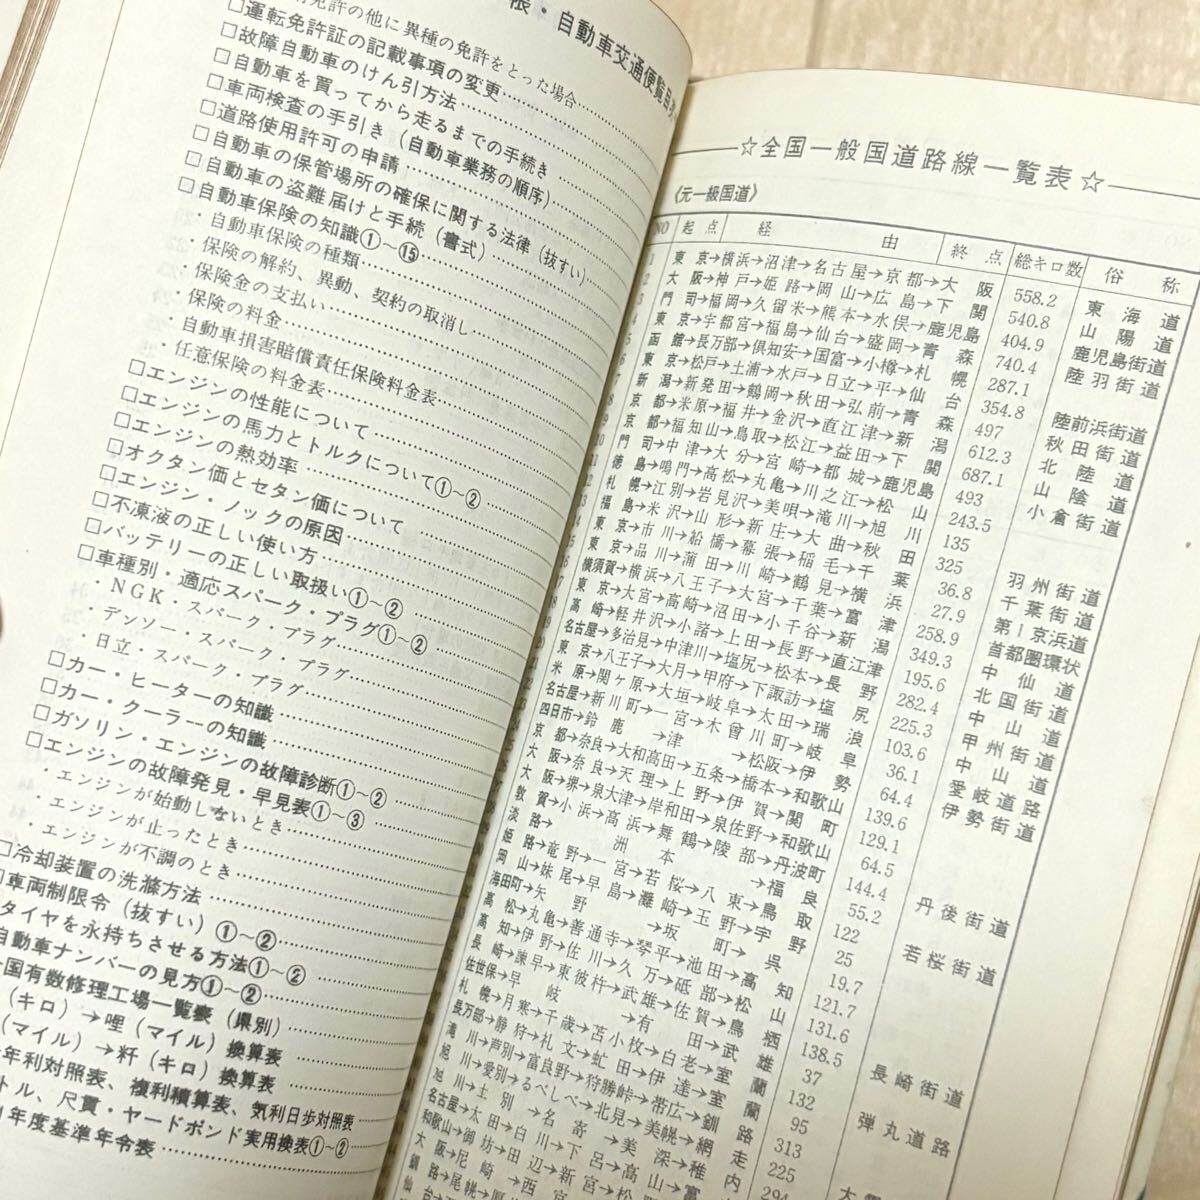 限・自動車交通便覧目次
許の他に異種の免許をとった場合
□運転免許証の記載事項の変更
□故障自動車のけん引方法
□自動車を買ってから走るまでの手続き
□車両検査の手引き（自動車業務の順序）
□道路使用許可の申請
□自動車の保管場所の確保に関する法律（抜すい）
□自動車の盗難届けと手続（書式）
□自動車保険の知識①～⑮
・自動車保険の種類
・保険の解約、異動、契約の取消し
・保険金の支払い
・保険の料金
・自動車損害賠償責任保険料金表
・任意保険の料金表
□エンジンの性能について
□エンジンの馬力とトルクについて①～②
□エンジンの熱効率
□オクタン価とセタン価について
□エンジン・ノックの原因
□不凍液の正しい使い方
□バッテリーの正しい取扱い①～②
□車種別・適応スパーク・プラグ①～②
・NGK スパーク・プラグ
・デンソー・スパーク・プラグ
・日立・スパーク・プラグ
□カー・ヒーターの知識
□カー・クーラーの知識
□ガソリン・エンジンの故障診断①～②
□エンジンの故障発見・早見表①～③
・エンジンが始動しないとき
・エンジンが止ったとき
・エンジンが不調のとき
□冷却装置の洗滌方法
□車両制限令（抜すい）①～②
タイヤを永持ちさせる方法①～②
自動車ナンバーの見方①～②
国有数修理工場一覧表（県別）
（キロ）→哩（マイル）換算表
（マイル）→粁（キロ）換算表
年利対照表、複利積算表、気利日歩対照表
トル、尺貫・ヤードポンド実用換表①～②
年度基準年令表
☆全国一般国道路線一覧表☆
《元一級国道》
NO 起点 経由 終点 総キロ数 俗称
1 東京→横浜→沼津→名古屋→京都→大阪 558.2 東海道
2 大阪→神戸→姫路→岡山→広島→下関 540.8 山陽道
門司→福岡→久留米→熊本→水俣→鹿児島 404.9 鹿児島街道
4 東京→宇都宮→福島→仙台→盛岡→青森 740.4 陸羽街道
5 函館→長万部→倶知安→国富→小樽→札幌 287.1
6 東京→松戸→土浦→水戸→日立→平→仙台 354.8 陸前浜街道
7 新潟→新発田→鶴岡→秋田→弘前→青森 497 秋田街道
京都→米原→福井→金沢→直江津→新潟 612.3 北陸道
9 京都→福知山→鳥取→松江→益田→下関 687.1 山陰道
10 門司→中津→大分→宮崎→都城→鹿児島 493 小倉街道
11 徳島→鳴門→高松→丸亀→川之江→松山 243.5
札幌→江別→岩見沢→美唄→滝川→旭川 135
13 福島→米沢→山形→新庄→大曲→秋田 325 羽州街道
14 東京→市川→船橋→幕張→稲毛→千葉 36.8 千葉街道
15 東京→品川→蒲田→川崎→鶴見→横浜 27.9 第一京浜
16 横須賀→横浜→八王子→大宮→千葉→富津 258.9 首都圏環状
東京→大宮→高崎→沼田→小千谷→新潟 349.3 中仙道
18 高崎→軽井沢→小諸→上田→長野→直江津 195.6 北国街道
名古屋→多治見→中津川→塩尻→松本→長野 282.4 中山道
東京→八王子→大月→甲府→下諏訪→塩尻 225.3 甲州街道
米原→関ヶ原→大垣→岐阜→太田→瑞浪 103.6 中山道
名古屋→新川町→一宮→木曽川町→岐阜 36.1 愛岐道路
四日市→鈴鹿→津→松阪→伊勢 64.4 伊勢街道
京都→奈良→大和高田→五条→橋本→和歌山 139.6
大阪→奈良→天理→上野→伊賀→関町 129.1
大阪→堺→泉大津→岸和田→泉佐野→和歌山 64.5
敦賀→小浜→高浜→舞鶴→陵部→丹波町 144.4 丹後街道
淡路→洲本→福良 55.2
姫路→竜野→一宮→若桜→八東→鳥取 122 若桜街道
岡山→妹尾→早島→灘崎→玉野→宇野 25
海田町→矢野→坂町→呉 19.7
高松→丸亀→善通寺→琴平→池田→高知 121.7
高知→伊野→佐川→久万→砥部→松山 131.6
長崎→諫早→東彼杵→武雄→佐賀→鳥栖 138.5 長崎街道
佐世保→早岐→有田→武雄 37
札幌→月寒→千歳→苫小牧→白老→室蘭 132 弾丸道路
長万部→静狩→礼文→虻田→伊達→室蘭 95
滝川→芦別→富良野→狩勝峠→帯広→釧路 313
旭川→愛別→るべしべ→北見→美幌→網走 225